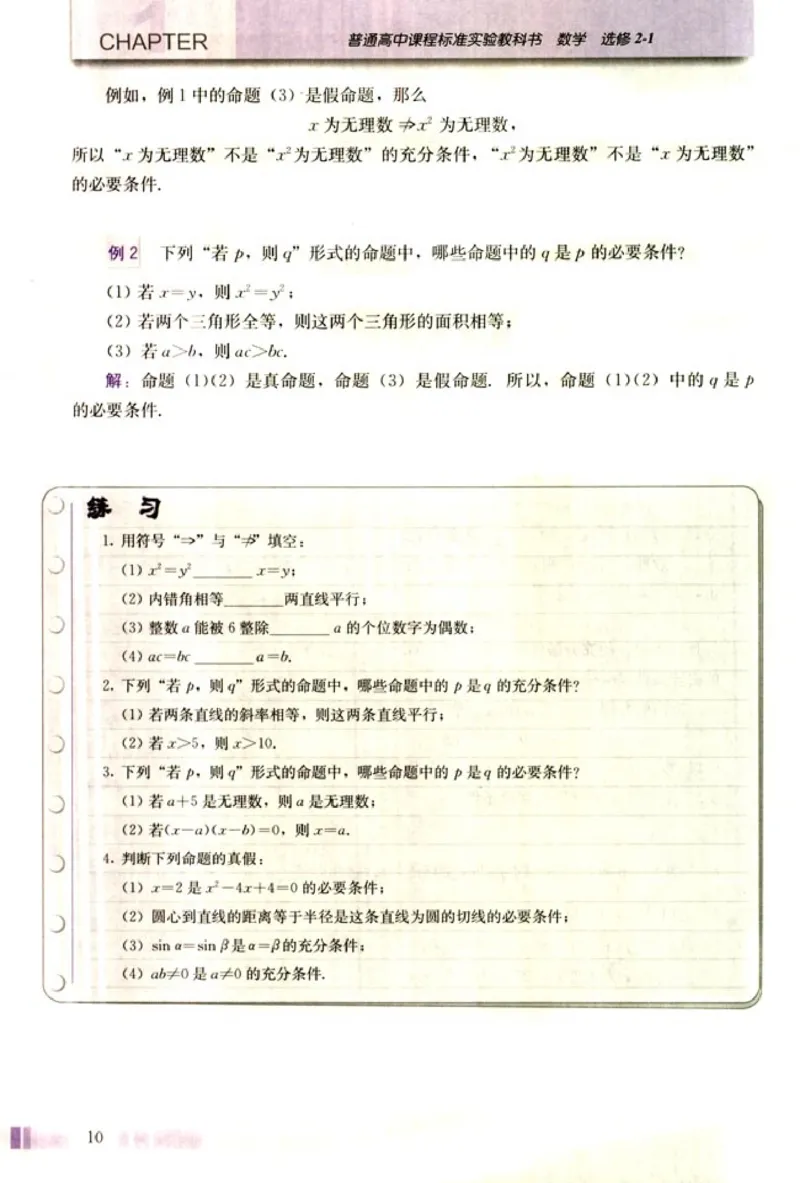 CHAPTER
普通高中课程标准实验教科书 数学 选修 2-1
例如，例 1 中的命题（3）是假命题，那么
x 为无理数 ⇏ x² 为无理数，
所以“x 为无理数”不是“x²为无理数”的充分条件，“x²为无理数”不是“x 为无理数”
的必要条件.
例 2 下列“若 p，则 q”形式的命题中，哪些命题中的 q 是 p 的必要条件？
（1）若 x=y，则 x²=y²；
（2）若两个三角形全等，则这两个三角形的面积相等；
（3）若 a>b，则 ac>bc.
解：命题（1）（2）是真命题，命题（3）是假命题. 所以，命题（1）（2）中的 q 是 p
的必要条件.
练 习
1. 用符号“⇒”与“⇏”填空：
（1）x²=y²______ x=y；
（2）内错角相等______两直线平行；
（3）整数 a 能被 6 整除______ a 的个位数字为偶数；
（4）ac=bc ______ a=b.
2. 下列“若 p，则 q”形式的命题中，哪些命题中的 p 是 q 的充分条件？
（1）若两条直线的斜率相等，则这两条直线平行；
（2）若 x>5，则 x>10.
3. 下列“若 p，则 q”形式的命题中，哪些命题中的 p 是 q 的必要条件？
（1）若 a+5 是无理数，则 a 是无理数；
（2）若(x-a)(x-b)=0，则 x=a.
4. 判断下列命题的真假：
（1）x=2 是 x²-4x+4=0 的必要条件；
（2）圆心到直线的距离等于半径是这条直线为圆的切线的必要条件；
（3）sin α=sin β是α=β的充分条件；
（4）ab≠0 是 a≠0 的充分条件.
10